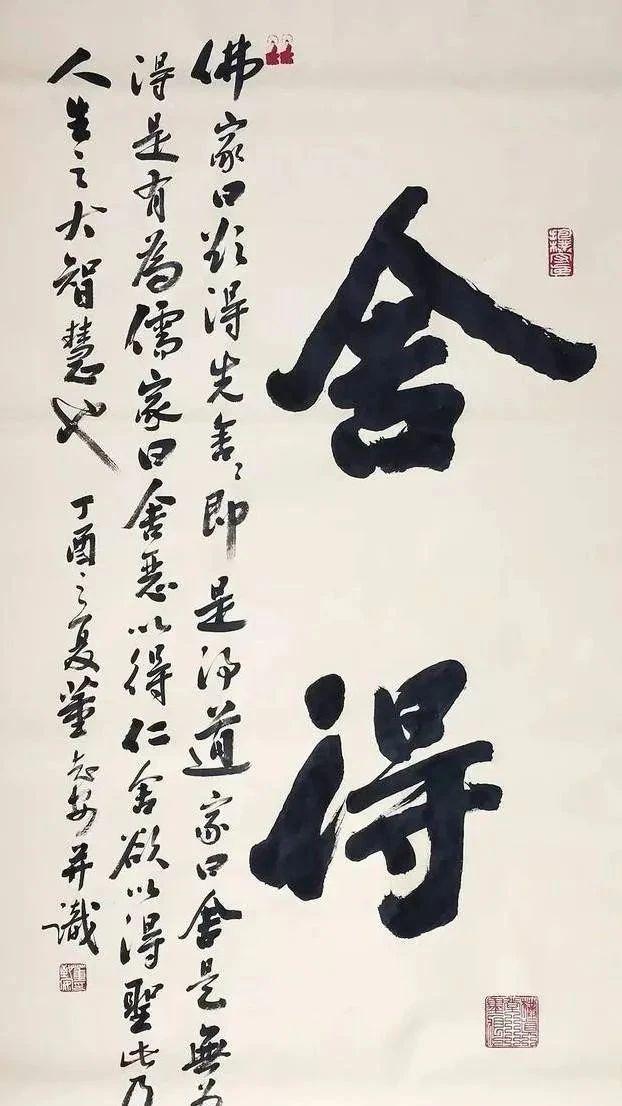 舍得
佛家曰欲得先舍舍即是得道家曰舍是無為
得是有為儒家曰舍惡以得仁舍欲以得聖此乃
人生之大智慧也
丁酉之夏董志安并識